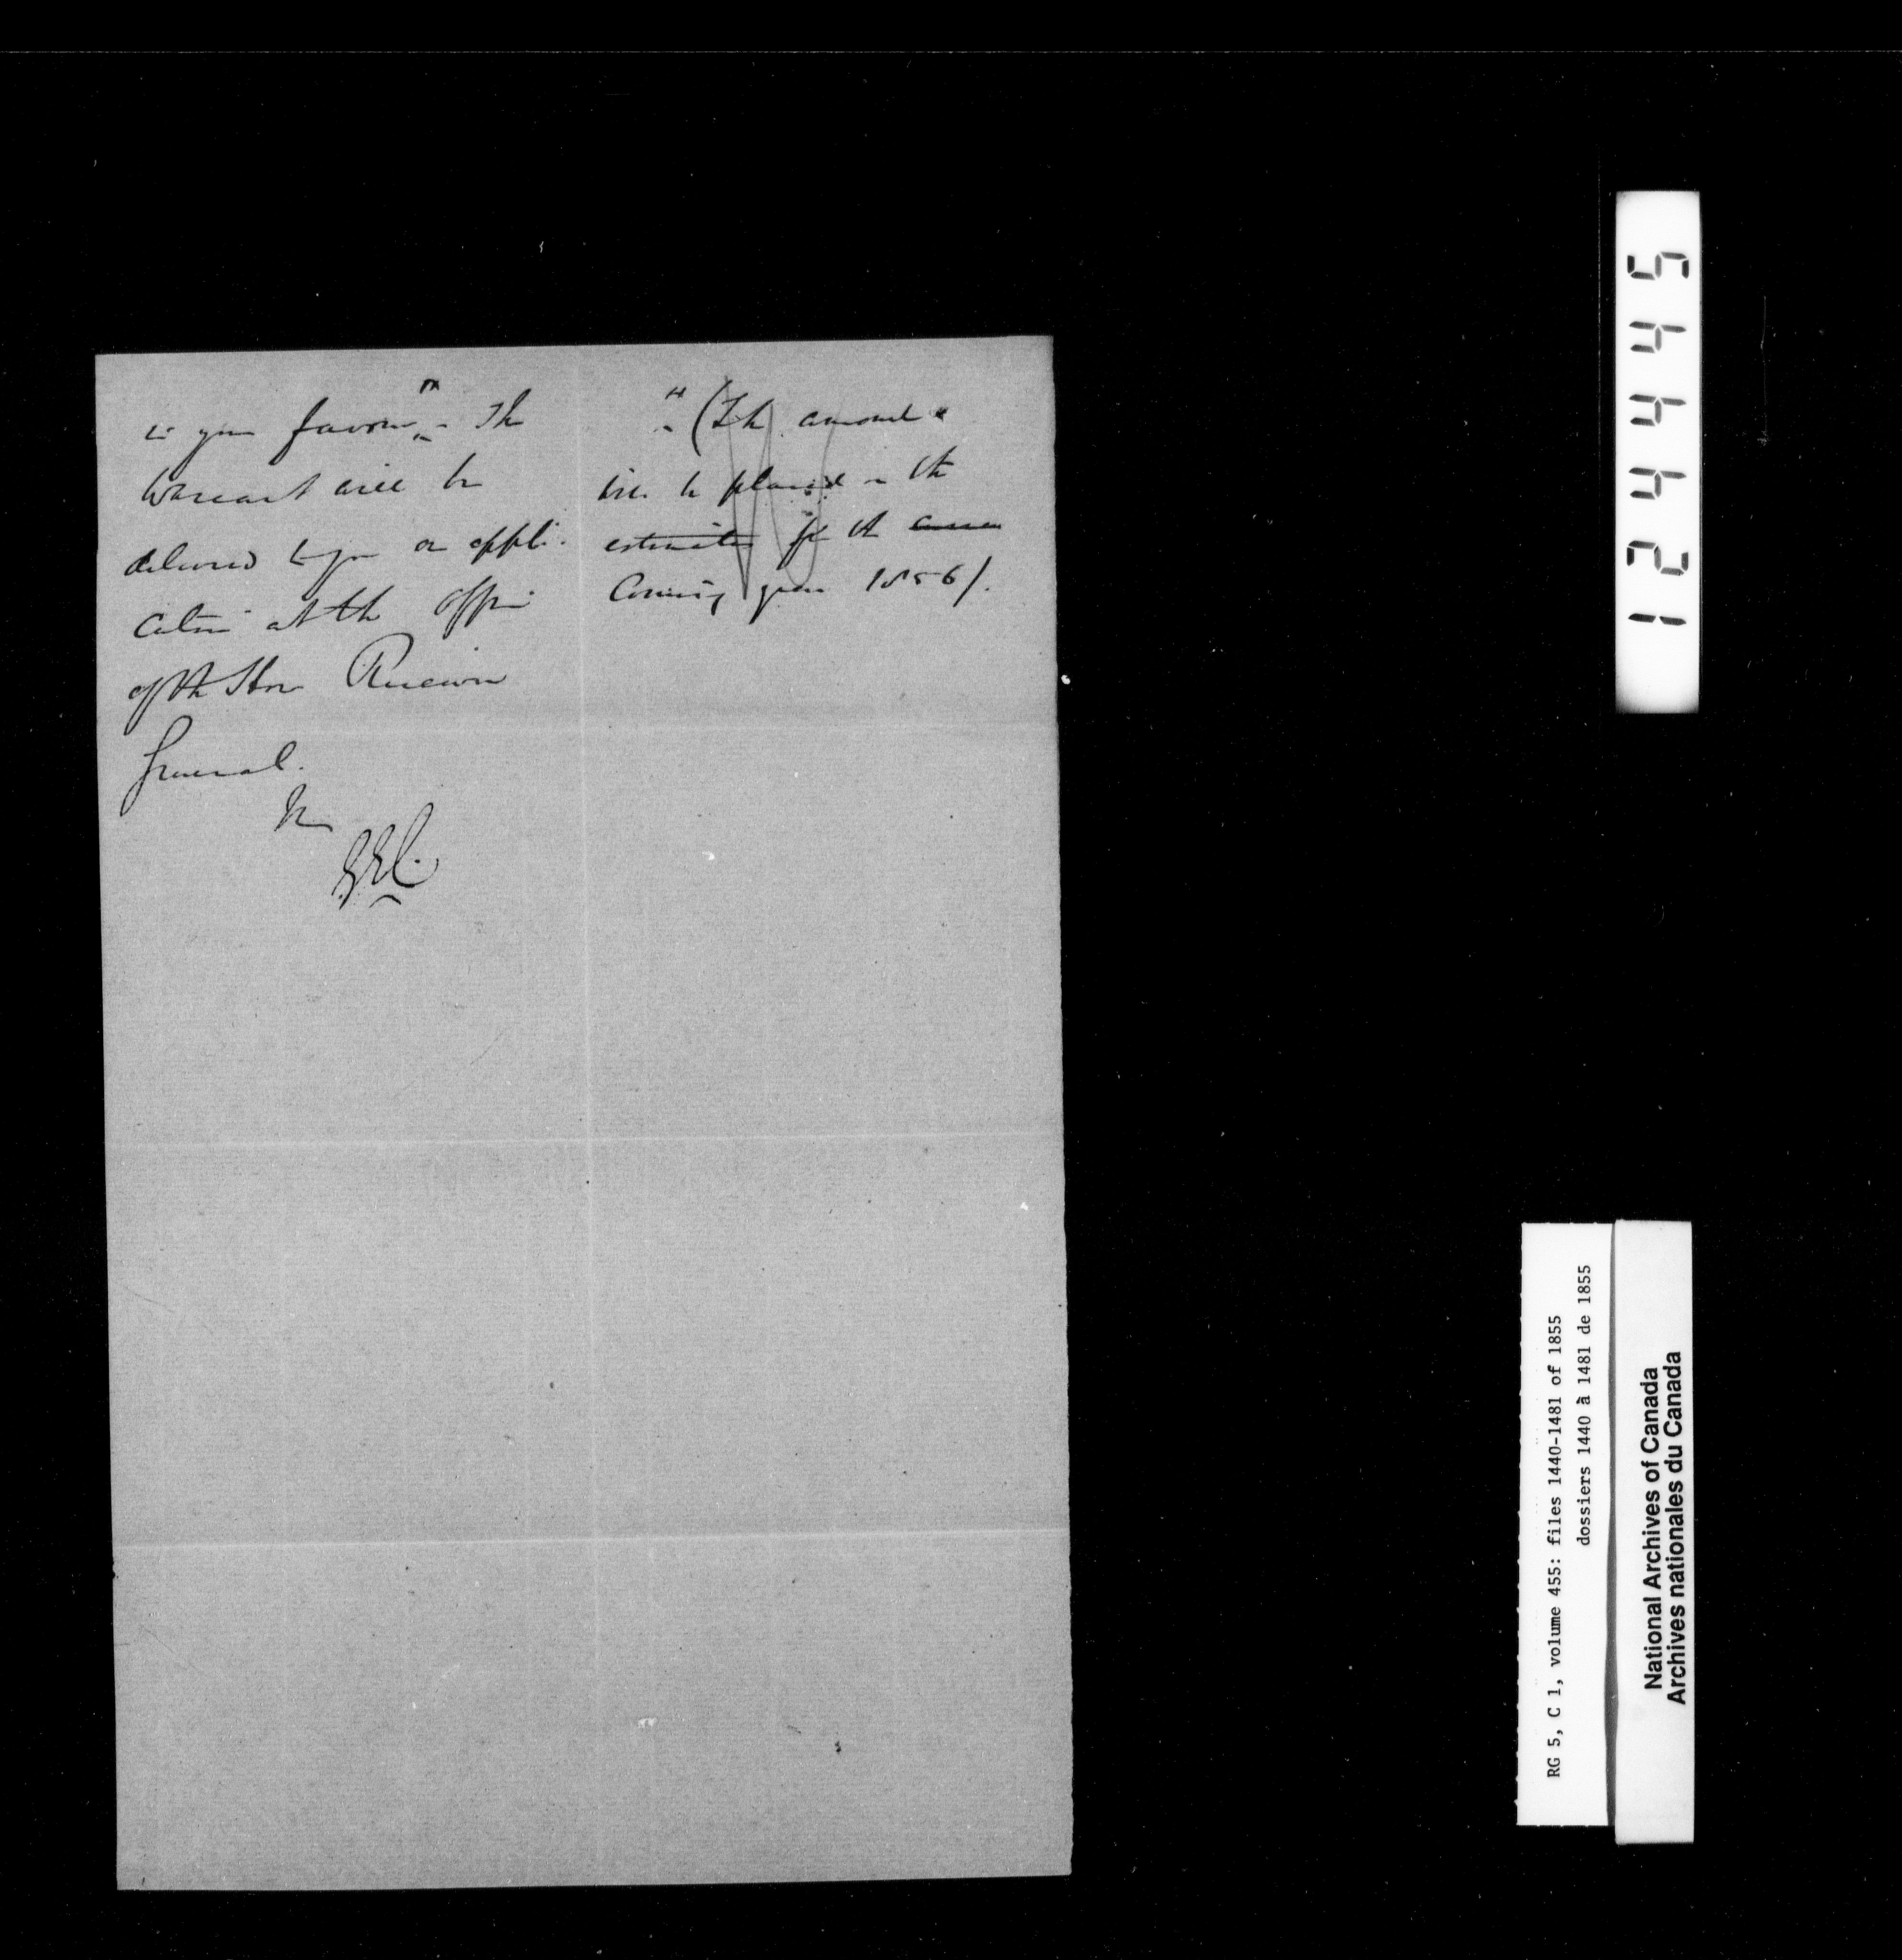 in your favour " – The
Warrant will be
delivered to you on appli-
cation at the Office
of the Hon Receiver
General.
" (The amount
will be placed in the
estimates for the
Coming year 1856).
124445
RG 5, C 1, volume 455: files 1440-1481 of 1855
dossiers 1440 à 1481 de 1855
National Archives of Canada
Archives nationales du Canada